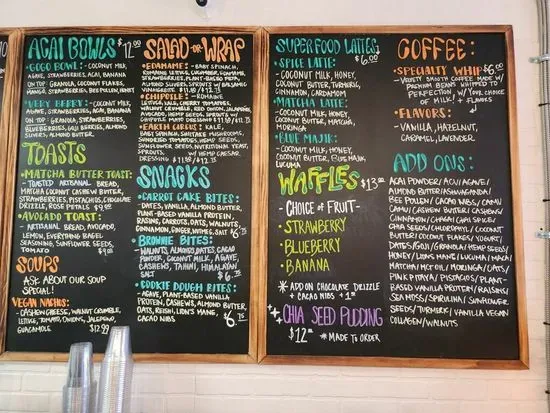 ACAI BOWLS $12.00
• GOGO BOWL: - COCONUT MILK,
AGAVE, STRAWBERRIES, ACAI, BANANA
ON TOP: GRANOLA, COCONUT FLAKES,
MANGO, STRAWBERRIES, BEE POLLEN, HONEY
• VERY BERRY: - COCONUT MILK,
AGAVE, STRAWBERRIES, ACAI, BANANA
ON TOP: GRANOLA, STRAWBERRIES,
BLUEBERRIES, GOJI BERRIES, ALMOND
SLIVERS
TOASTS
• MATCHA BUTTER TOAST:
- TOASTED ARTISANAL BREAD,
MATCHA COCONUT CASHEW BUTTER,
STRAWBERRIES, PISTACHIOS, CHOCOLATE
DRIZZLE, ROSE PETALS
• AVOCADO TOAST:
- ARTISANAL BREAD, AVOCADO,
LEMON, EVERYTHING BAGEL
SEASONING, SUNFLOWER SEEDS,
TOMATO
SOUPS
ASK ABOUT OUR SOUP
SPECIAL!
VEGAN NACHOS:
- CASHEW CHEESE, WALNUT CRUMBLE,
LETTUCE, TOMATO, ONIONS, JALAPEÑO,
GUACAMOLE $12.99
SALAD OR WRAP
• EDAMAME: - BABY SPINACH,
ROMAINE LETTUCE, CUCUMBER, EDAMAME,
STRAWBERRIES, PLANT-BASED FETA,
ALMOND SLIVERS, W/ BALSAMIC
VINAIGRETTE $11.85/$12.35
• CHIPOTLE: - ROMAINE
LETTUCE, KALE, CHERRY TOMATOES,
WALNUT CRUMBLE, RED ONION, JALAPEÑOS,
AVOCADO, HEMP SEEDS, SPROUTS W/
CHIPOTLE MAYO DRESSING $11.85/$12.35
• EARTH CIRCUS: KALE,
BABY SPINACH, SHIITAKE MUSHROOMS,
SUNDRIED TOMATOES, HEMP SEEDS,
SUNFLOWER SEEDS, NUTRITIONAL YEAST,
SPROUTS, W/ HEMP CAESAR
DRESSING $11.85/$12.35
SNACKS
• CARROT CAKE BITES:
- DATES, VANILLA, ALMOND BUTTER,
PLANT-BASED VANILLA PROTEIN,
RAISINS, CARROTS, OATS, WALNUTS,
CINNAMON, GINGER, NUTMEG, SALT
• BROWNIE BITES:
- WALNUTS, ALMONDS, DATES, CACAO
POWDER, COCONUT MILK, AGAVE,
CASHEWS, TAHINI, HIMALAYAN
SALT $6.75
• COOKIE DOUGH BITES:
- AGAVE, PLANT-BASED VANILLA
PROTEIN, CASHEWS, ALMOND BUTTER,
OATS, REISHI, LION'S MANE,
CACAO NIBS $6.75
SUPERFOOD LATTES
• SPICE LATTE: $6.00
- COCONUT MILK, HONEY,
COCONUT BUTTER, TURMERIC,
CINNAMON, CARDAMOM
• MATCHA LATTE:
- COCONUT MILK, HONEY,
COCONUT BUTTER, MATCHA,
MORINGA
• BLUE MAJIK:
- COCONUT MILK, HONEY,
COCONUT BUTTER, BLUE MAJIK,
LUCUMA
WAFFLES $13.00
- CHOICE OF FRUIT -
- STRAWBERRY
- BLUEBERRY
- BANANA
* ADD ON CHOCOLATE DRIZZLE
+ CACAO NIBS +1.50
CHIA SEED PUDDING
$12.00 *MADE TO ORDER
COFFEE:
• SPECIALTY WHIP $6.00
- VELVETY SMOOTH COFFEE MADE W/
PREMIUM BEANS WHIPPED TO
PERFECTION W/ YOUR CHOICE
OF MILK! + FLAVORS
• FLAVORS:
- VANILLA, HAZELNUT,
CARAMEL, LAVENDER
ADD ONS:
ACAI POWDER/ ACV/ AGAVE/
ALMOND BUTTER/ASHWAGANDHA/
BEE POLLEN/ CACAO NIBS/ CAMU
CAMU/ CASHEW BUTTER/ CASHEWS/
CINNAMON/ CHAGA/ CHIA SPICE/
CHIA SEEDS/ CHLORELLA/ COCONUT
BUTTER/ COCONUT FLAKES/ YOGURT/
DATES/GOJI/ GRANOLA/ HEMP SEEDS/
HONEY/ LIONS MANE/ LUCUMA/ MACA/
MATCHA/ MCT OIL/ MORINGA/ OATS/
PINK PITAYA/ PISTACHIOS/ PLANT-
BASED VANILLA PROTEIN/ RAISINS/
SEA MOSS/ SPIRULINA/ SUNFLOWER
SEEDS/ TURMERIC/ VANILLA VEGAN
COLLAGEN/WALNUTS